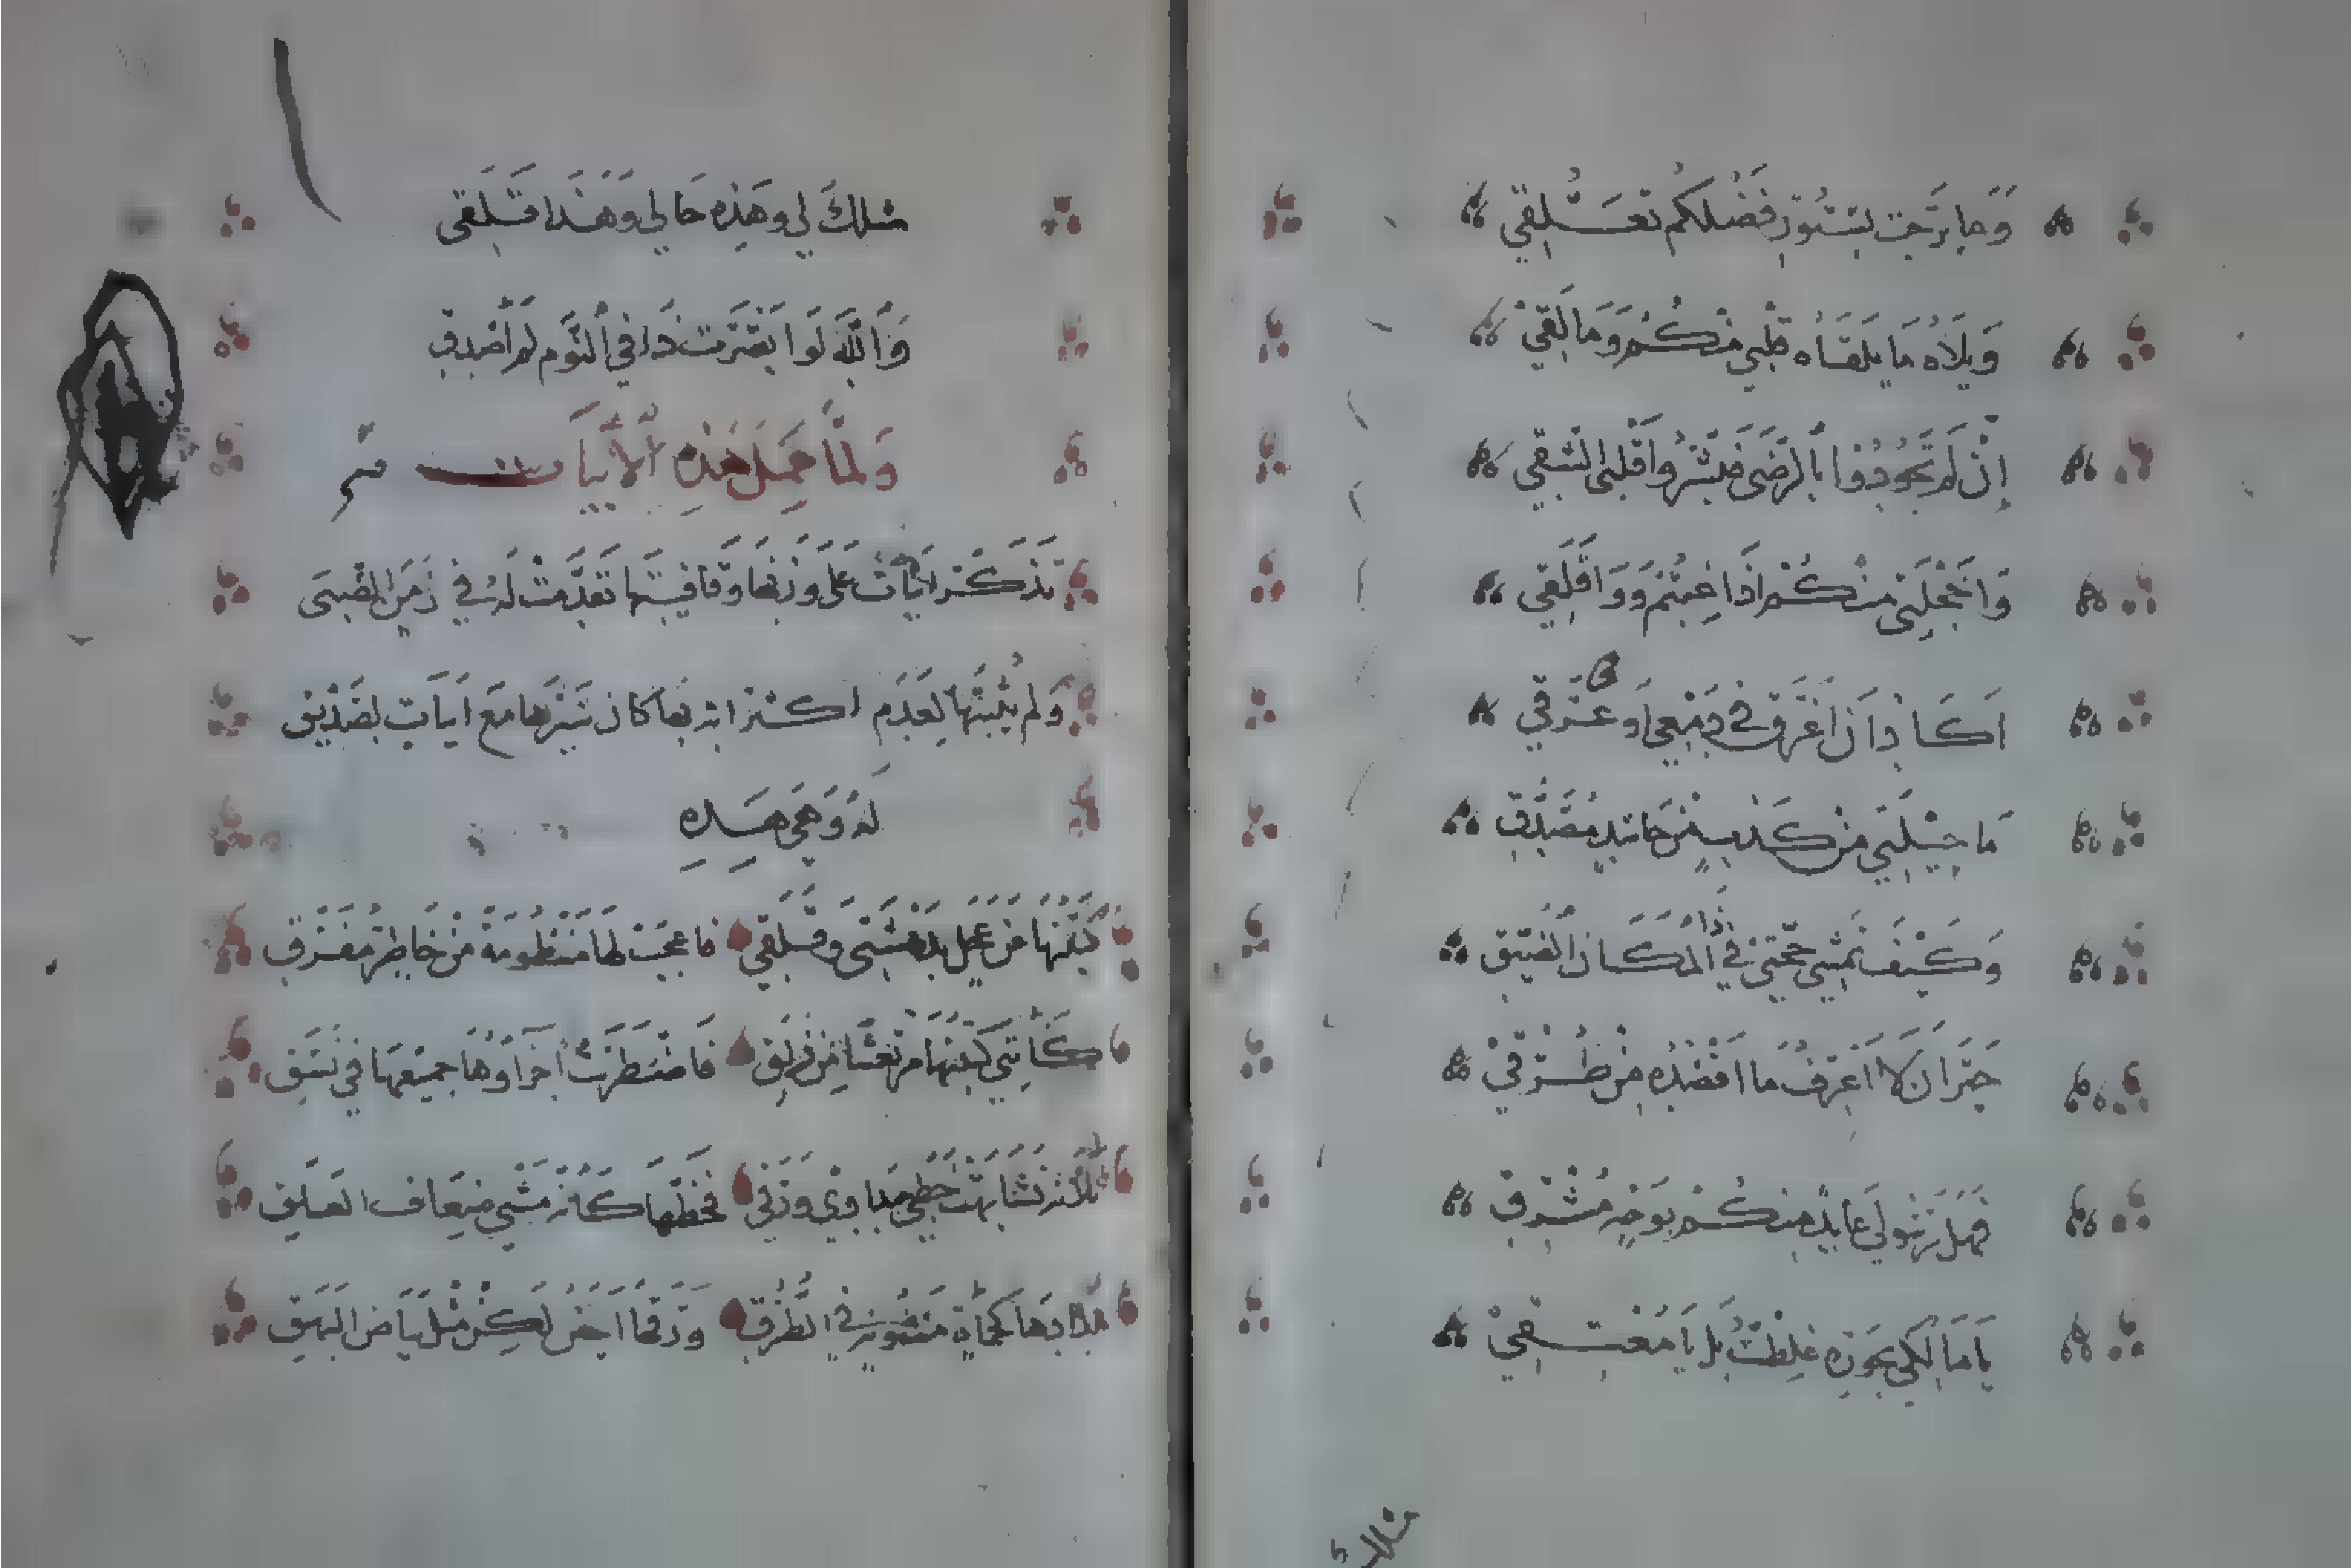 وَمَا بَرَحَتْ بِسُتُورِ فَضْلِكُمْ تَعَلُّقِي
وَيْلَاهُ مَا يَلْقَاهُ قَلْبِي مِنْكُمُ وَمَا لَقِي
إِنْ لَمْ تَجُودُوا بِالرِّضَى فَبَشِّرُوا قَلْبِي الشَّقِي
وَاخَجْلَتِي مِنْكُمْ إِذَا غِبْتُمْ وَوَاقَلَقِي
أَكَادُ أَنْ أَغْرَقَ فِي دَمْعِي أَوْ عَرَقِي
مَا حِيلَتِي مِنْ كَذِبٍ مِنْ حَاسِدٍ مُصَدَّقِ
وَكَيْفَ تَمْشِي حُجَّتِي فِي ذَا الْمَكَانِ الضَّيِّقِ
حَيْرَانُ لَا أَعْرِفُ مَا أَقْصِدُهُ مِنْ طُرُقِي
فَهَلْ رَسُولٌ عَائِدٌ مِنْكُمْ بِوَجْهٍ مُشْرِقِ
يَا مَالِكِي بِجُودِهِ غَلِطْتُ بَلْ يَا مُعْتِقِي
مثلك
مثلك لِي وَهَذِهِ حَالِي وَهَذَا قَلَقِي
وَاللَّهِ لَوْ أَبْصَرْتَ ذَا فِي النَّوْمِ لَمْ أُصَدِّقِ
وَلَمَّا عَمِلَ هَذِهِ الْأَبْيَاتَ
تَذَكَّرَ أَبْيَاتٌ عَلَى وَزْنِهَا وَقَافِيَتِهَا تَقَدَّمَتْ لَهُ فِي زَمَنِ الصِّبَى
وَلَمْ يُثْبِتْهَا لِعَدَمِ اكْتِرَاثِهِ بِهَا كَانَ سَيَّرَهَا مَعَ أَبْيَاتٍ لِصَدِيقٍ
لَهُ وَهِيَ هَذِهِ
كَتَبْتُهَا مِنْ عَجَلٍ بِدَهْشَتِي وَقَلَقِي فَاعْجَبْ لَهَا مَنْظُومَةً مِنْ خَاطِرٍ مُفَرَّقِ
كَأَنَّنِي كَتَبْتُهَا مُرْتَعِشًا مِنْ زَلَقِ فَاضْطَرَبَتْ أَجْزَاؤُهَا جَمِيعُهَا فِي نَسَقِ
ثَلَاثَةٌ تَشَابَهَتْ خَطِّي مِدَادِي وَرَقِي فَخَطُّهَا كَأَنَّهُ مَشْيُ ضِعَافِ الْعَلَقِ
مِدَادُهَا كَحَمْأَةٍ مَنْثُورَةٍ فِي الطُّرُقِ وَرَقُهَا أَبْيَضُ لَكِنْ مِثْلُ بَيَاضِ الْبَهَقِ